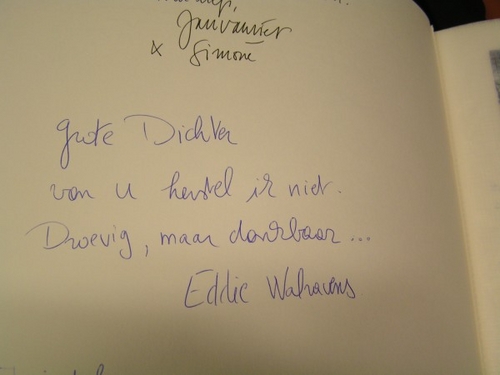 Janvanriet
x Simone
grote Dichter
van u herstel ik niet.
Droevig, maar dankbaar...
Eddie Walravens